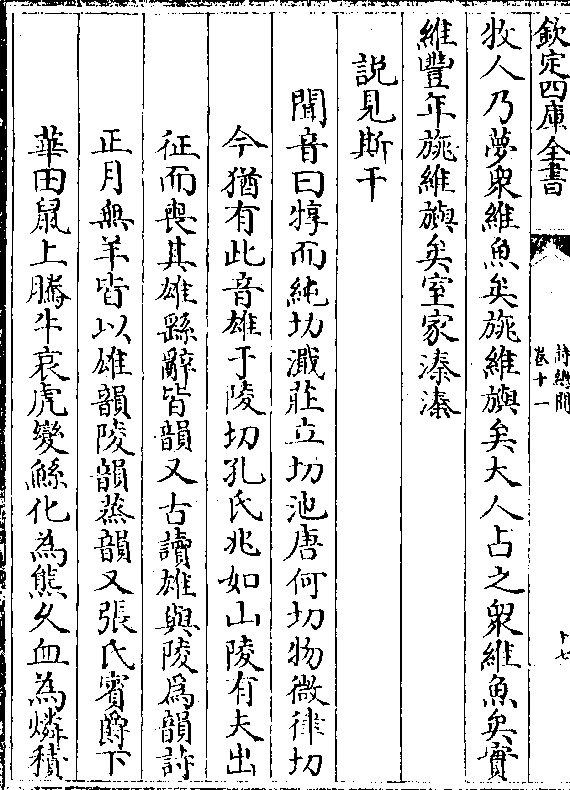 欽定四庫全書
詩總聞
卷十一
十七
牧人乃夢衆維魚矣旐維旟矣大人占之衆維魚矣實
維豐年旐維旟矣室家溱溱
説見斯干
聞音曰犉而純切濈莊立切池唐何切物微律切
今猶有此音雄于陵切孔氏兆如山陵有夫出
征而喪其雄繇辭皆韻又古讀雄與陵為韻詩
正月無羊皆以雄韻陵韻蒸韻又張氏賓爵下
華田鼠上騰牛哀虎變鯀化為熊乆血為燐積